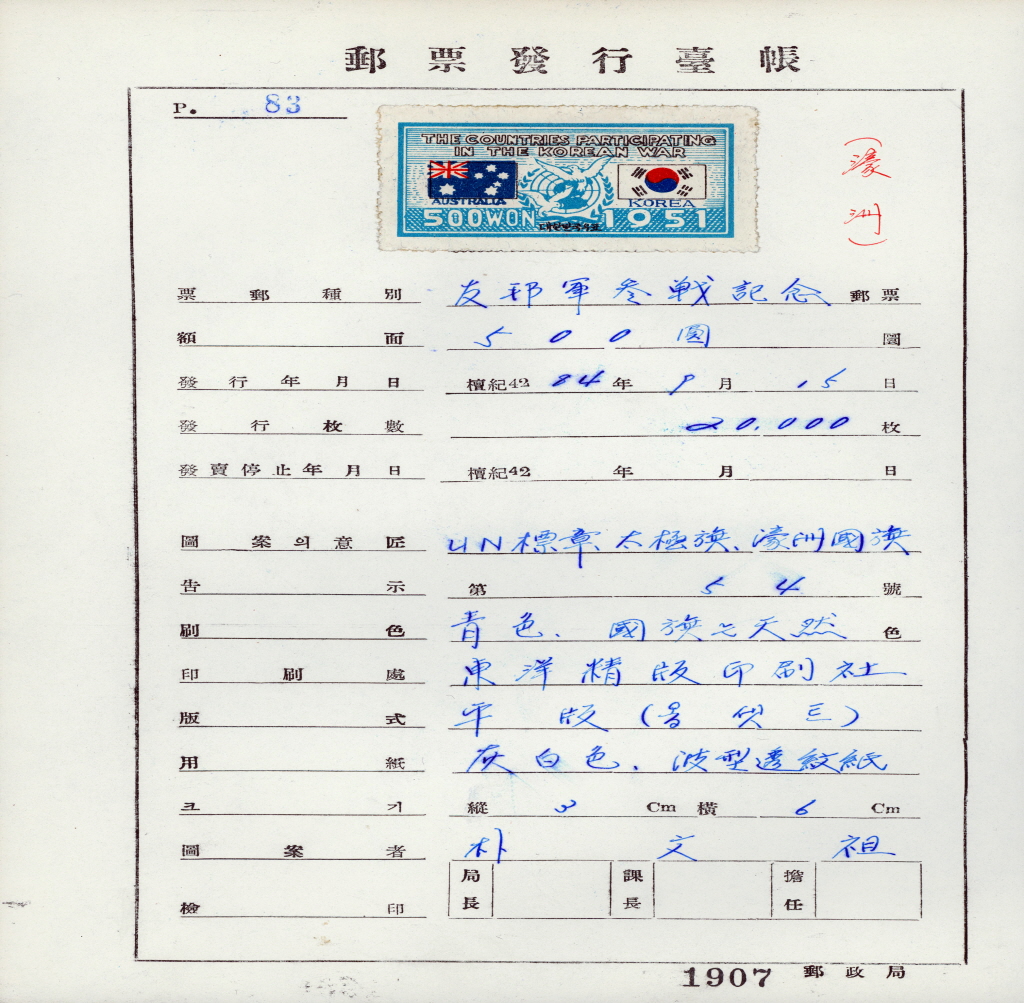 郵票發行臺帳
P. 83
THE COUNTRIES PARTICIPATING
IN THE KOREAN WAR
AUSTRALIA
KOREA
500WON 1951
(濠洲)
票郵種別 友邦軍參戰記念 郵票
額面 500圓 圜
發行年月日 檀紀4284年 9月 15日
發行枚數 20,000枚
發賣停止年月日 檀紀42 年 月 日
圖案의意匠 UN標章太極旗、濠洲國旗
告示 第 54 號
刷色 青色、國旗는天然色
印刷處 東洋精版印刷社
版式 平版(옵셋트)
用紙 灰白色、波型透紋紙
크기 縱 3 Cm 橫 6 Cm
圖案者 朴文祖
檢印 局長 課長 擔任
1907 郵政局